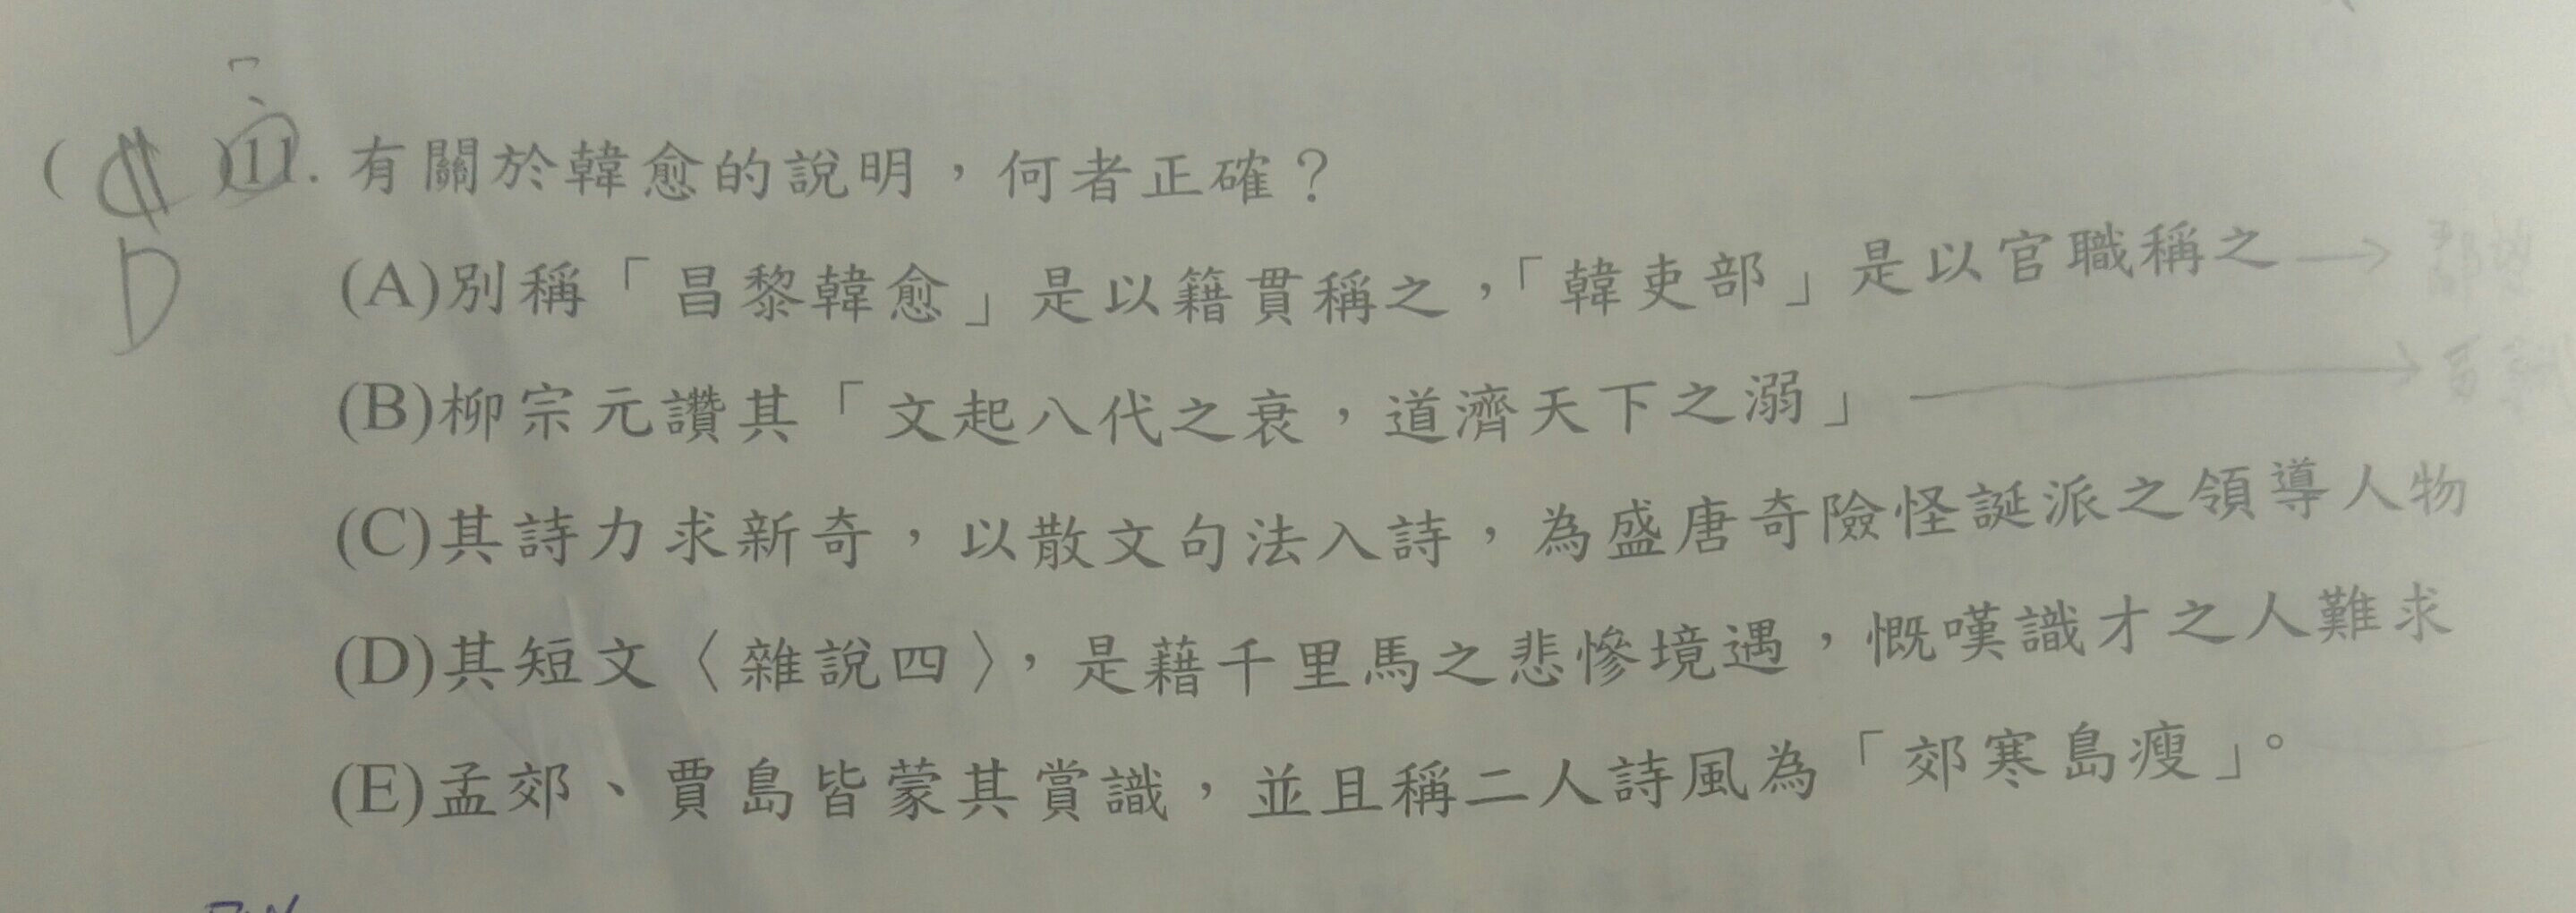 ( )11. 有關於韓愈的說明，何者正確？
D
(A)別稱「昌黎韓愈」是以籍貫稱之，「韓吏部」是以官職稱之→郡望
(B)柳宗元讚其「文起八代之衰，道濟天下之溺」→
(C)其詩力求新奇，以散文句法入詩，為盛唐奇險怪誕派之領導人物
(D)其短文〈雜說四〉，是藉千里馬之悲慘境遇，慨嘆識才之人難求
(E)孟郊、賈島皆蒙其賞識，並且稱二人詩風為「郊寒島瘦」。